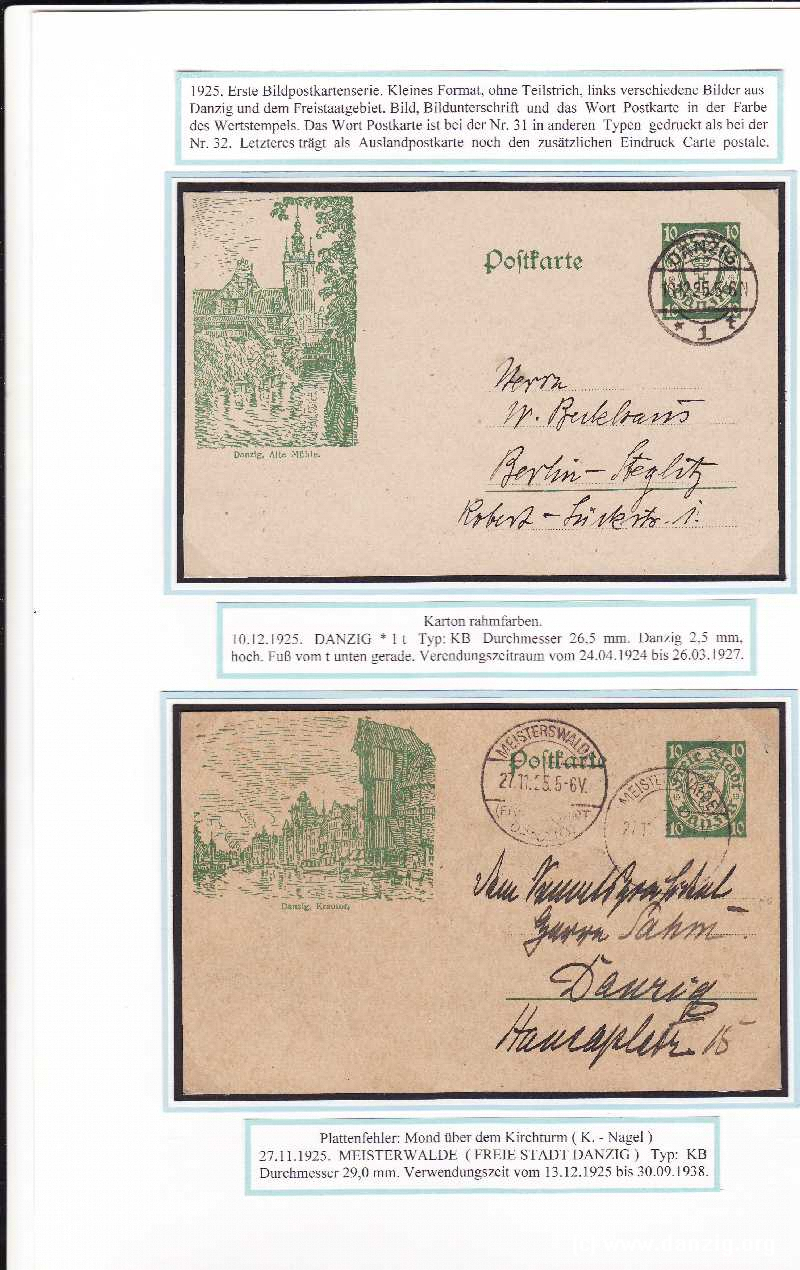 1925. Erste Bildpostkartenserie. Kleines Format, ohne Teilstrich, links verschiedene Bilder aus
Danzig und dem Freistaatgebiet. Bild, Bildunterschrift und das Wort Postkarte in der Farbe
des Wertstempels. Das Wort Postkarte ist bei der Nr. 31 in anderen Typen gedruckt als bei der
Nr. 32. Letzteres trägt als Auslandpostkarte noch den zusätzlichen Eindruck Carte postale.
10 10
Postkarte
DANZIG
10.12.25.5-6N
* 1 t
Herrn
W. Beckhaus
Berlin-Steglitz
Robert-
Danzig, Alte Mühle.
Karton rahmfarben.
10.12.1925. DANZIG * 1 t Typ: KB Durchmesser 26,5 mm. Danzig 2,5 mm,
hoch. Fuß vom t unten gerade. Verendungszeitraum vom 24.04.1924 bis 26.03.1927.
MEISTERSWALDE
Postkarte
27.11.25.5-6V.
10 10
Freie Stadt
Danzig
10 10
MEISTE
27.1
Danzig, Krantor.
Herrn Sahm.
Danzig
15
Plattenfehler: Mond über dem Kirchturm ( K. - Nagel )
27.11.1925. MEISTERWALDE ( FREIE STADT DANZIG ) Typ: KB
Durchmesser 29,0 mm. Verwendungszeit vom 13.12.1925 bis 30.09.1938.
(c) www.danzig.org